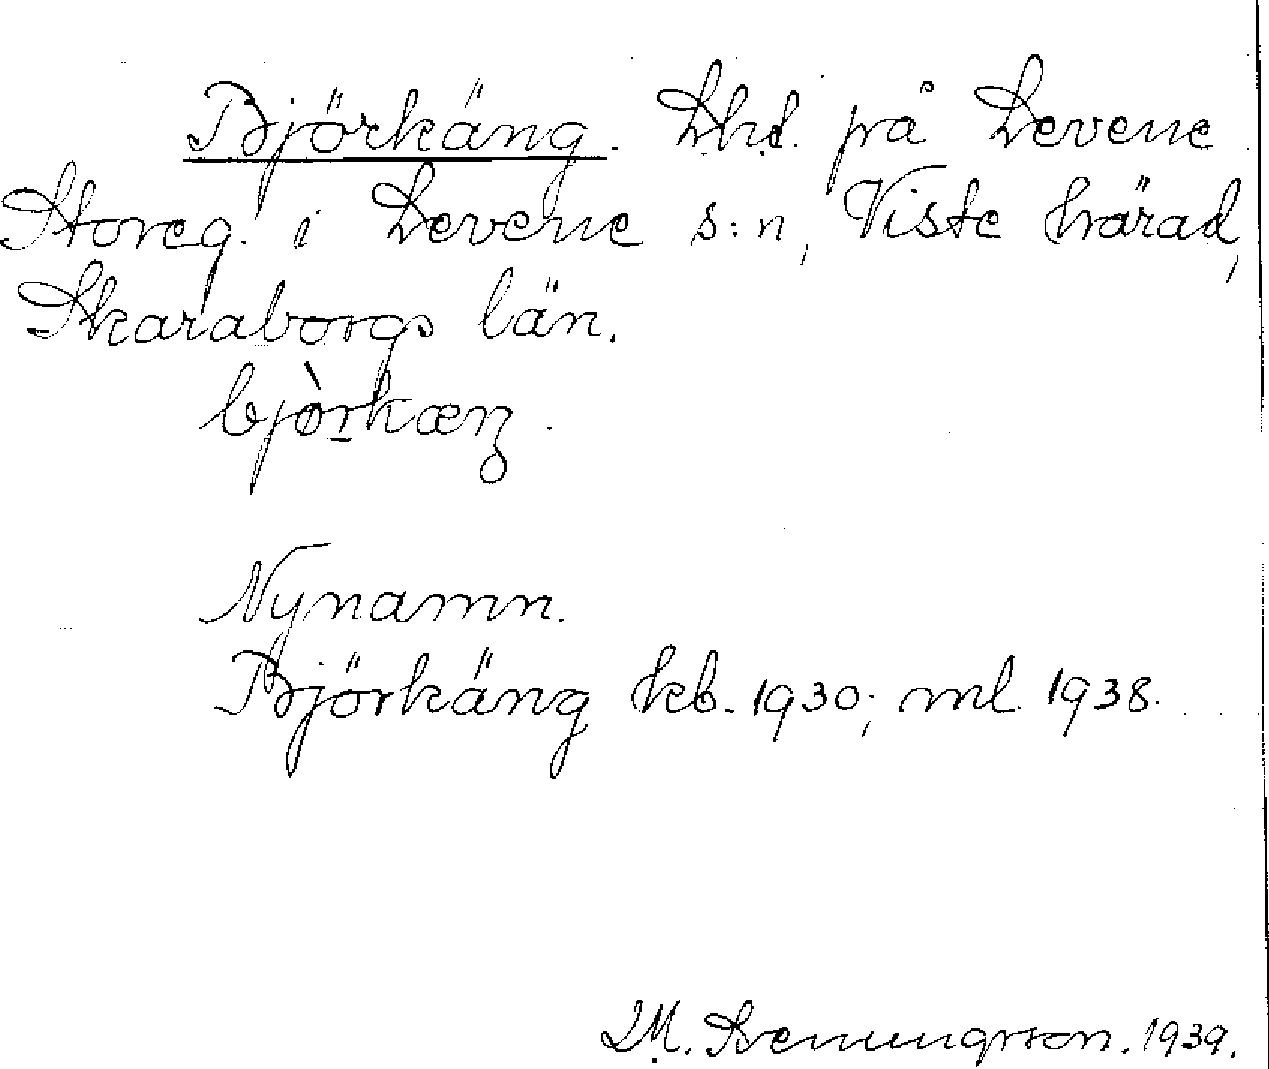 Björkäng. Lhd. på Levene
Storeg. i Levene s:n, Viste härad,
Skaraborgs län.
bjòrkæŋ.
Nynamn.
Björkäng kb. 1930; ml. 1938.
M. 1939.